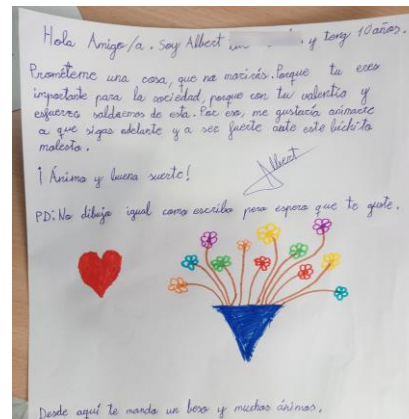 Hola Amigo/a. Soy Albert y tengo 10 años.
Prométeme una cosa, que no morirás. Porque tu eres
importante para la sociedad, porque con tu valentía y
esfuerzo saldremos de esta. Por eso, me gustaría animarte
a que sigas adelante y a ser fuerte ante este bichito
molesto.
¡Ánimo y buena suerte!
Albert
PD: No dibujo igual como escribo pero espero que te guste.
Desde aquí te mando un beso y muchos ánimos.